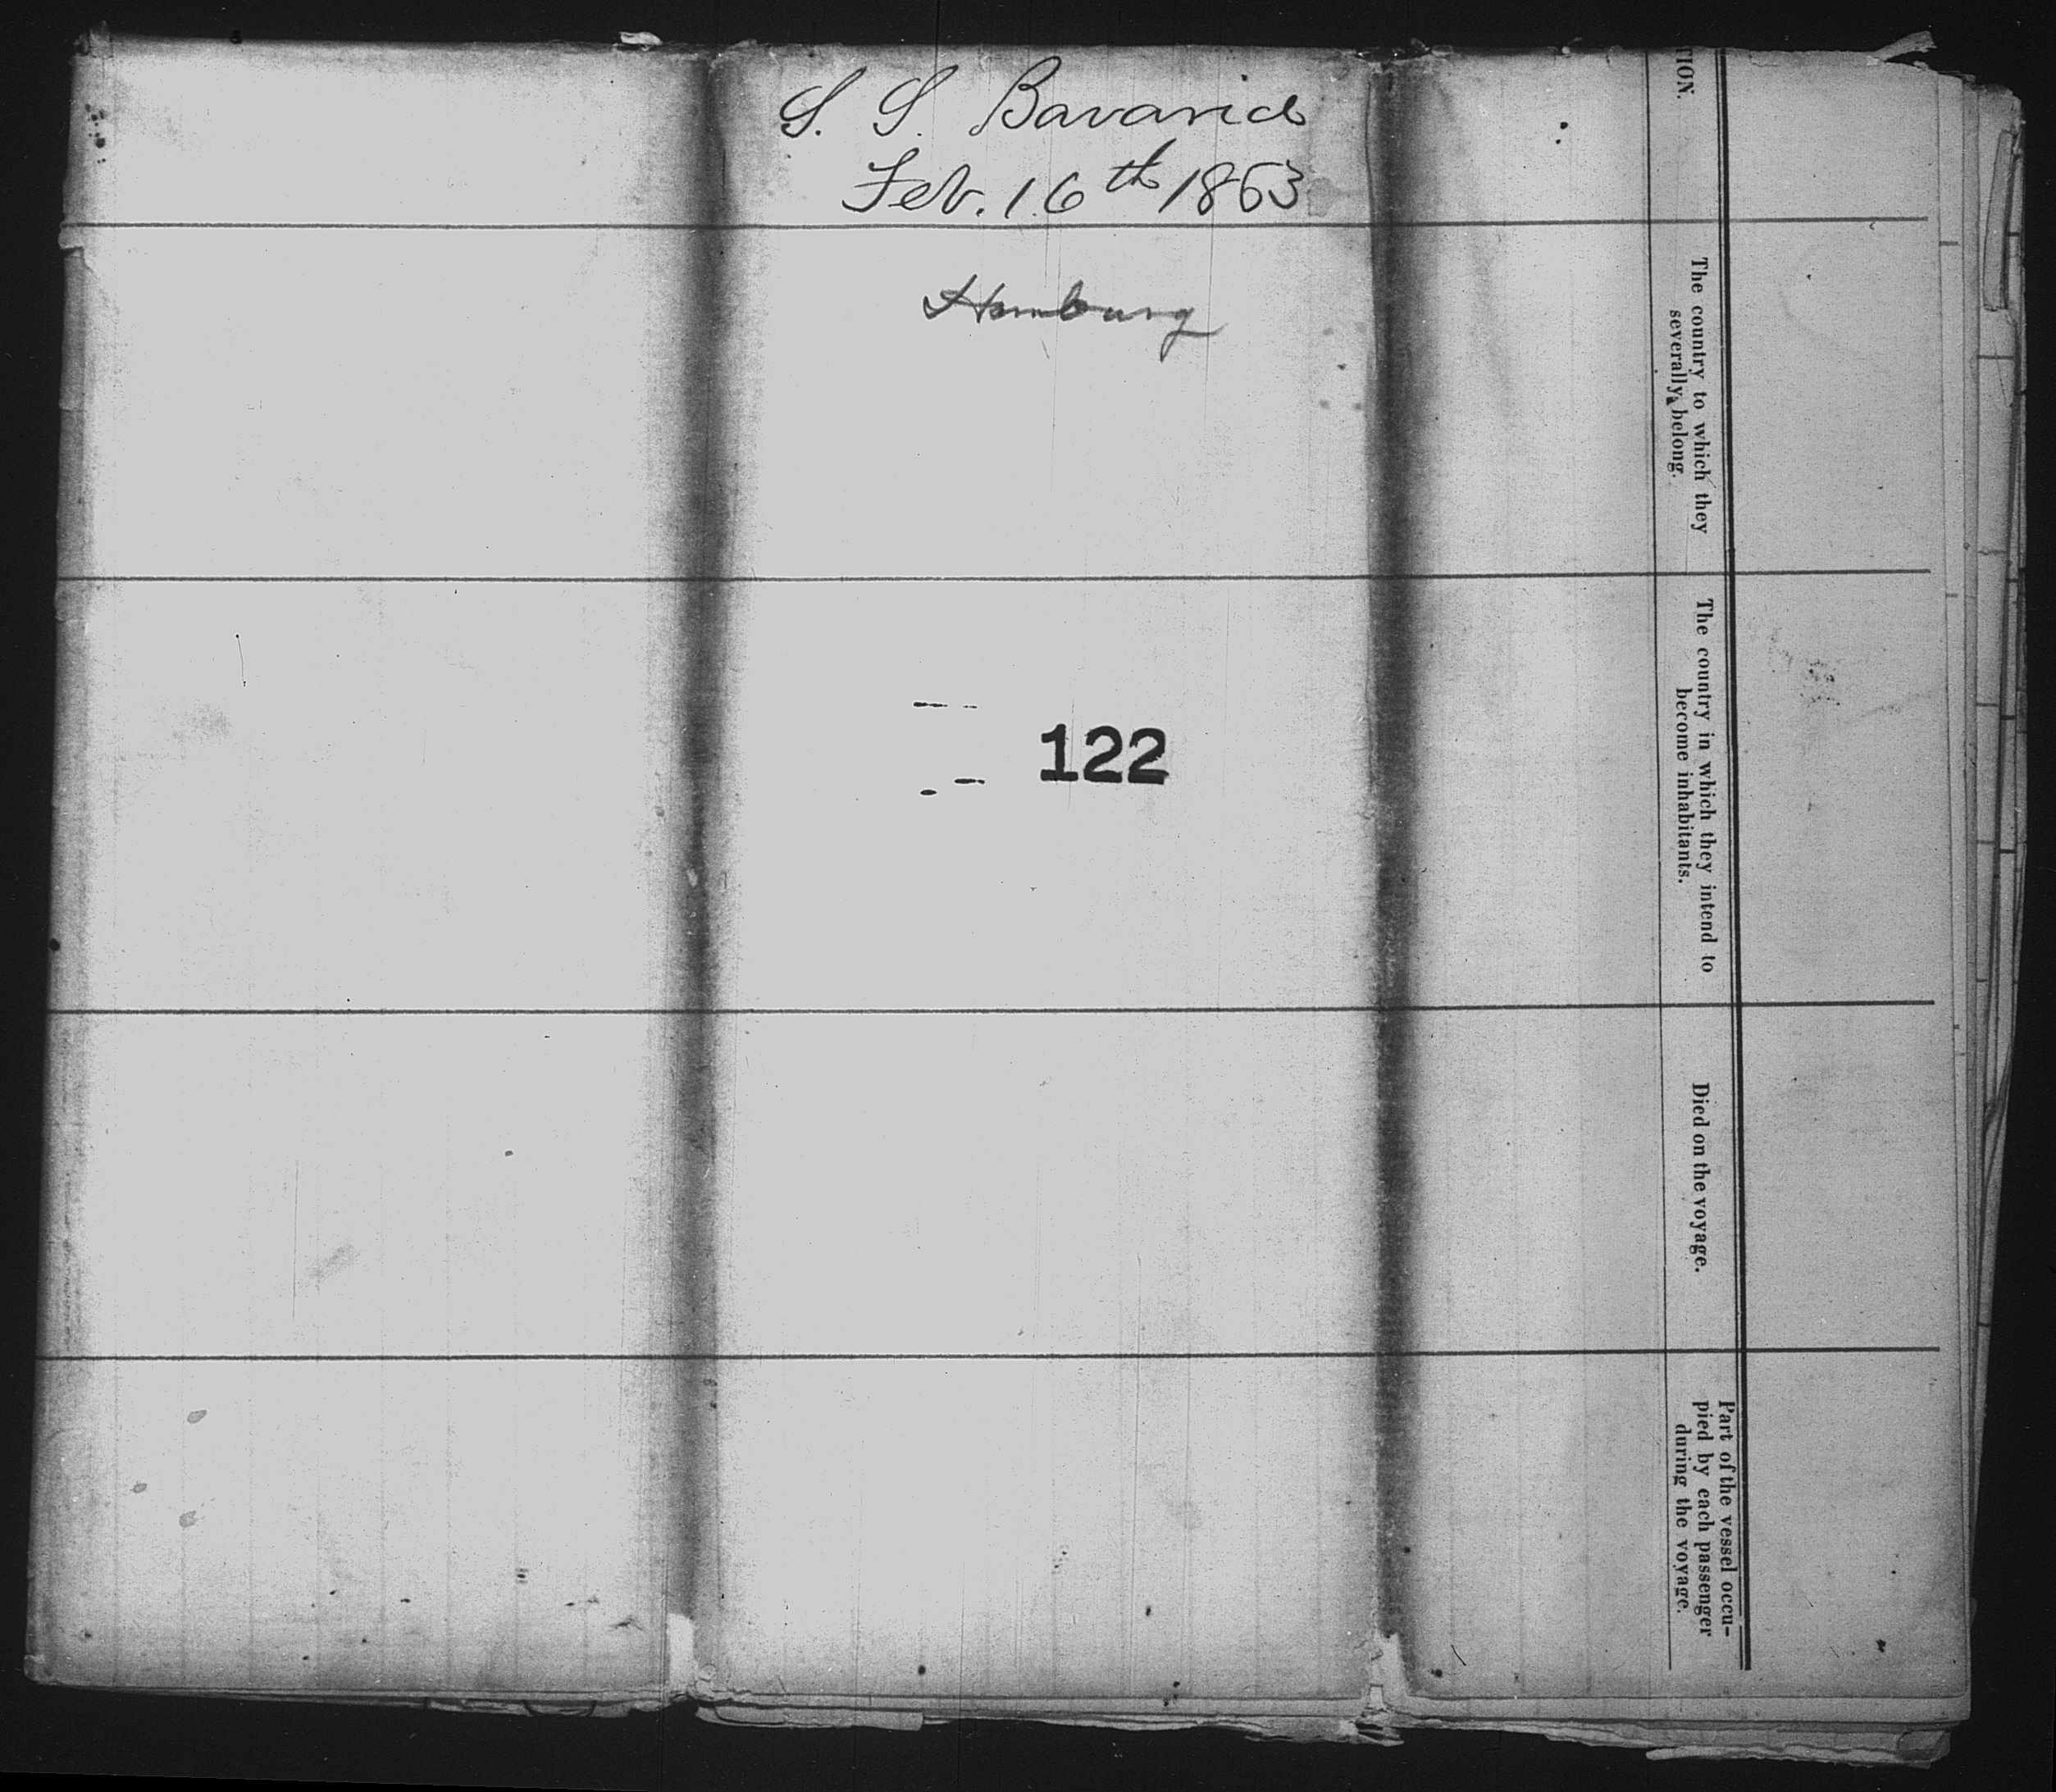 S. S. Bavaria
Feb. 16th 1863
Hamburg
122
TION.
The country to which they
severally belong.
The country in which they intend to
become inhabitants.
Died on the voyage.
Part of the vessel occu-
pied by each passenger
during the voyage.